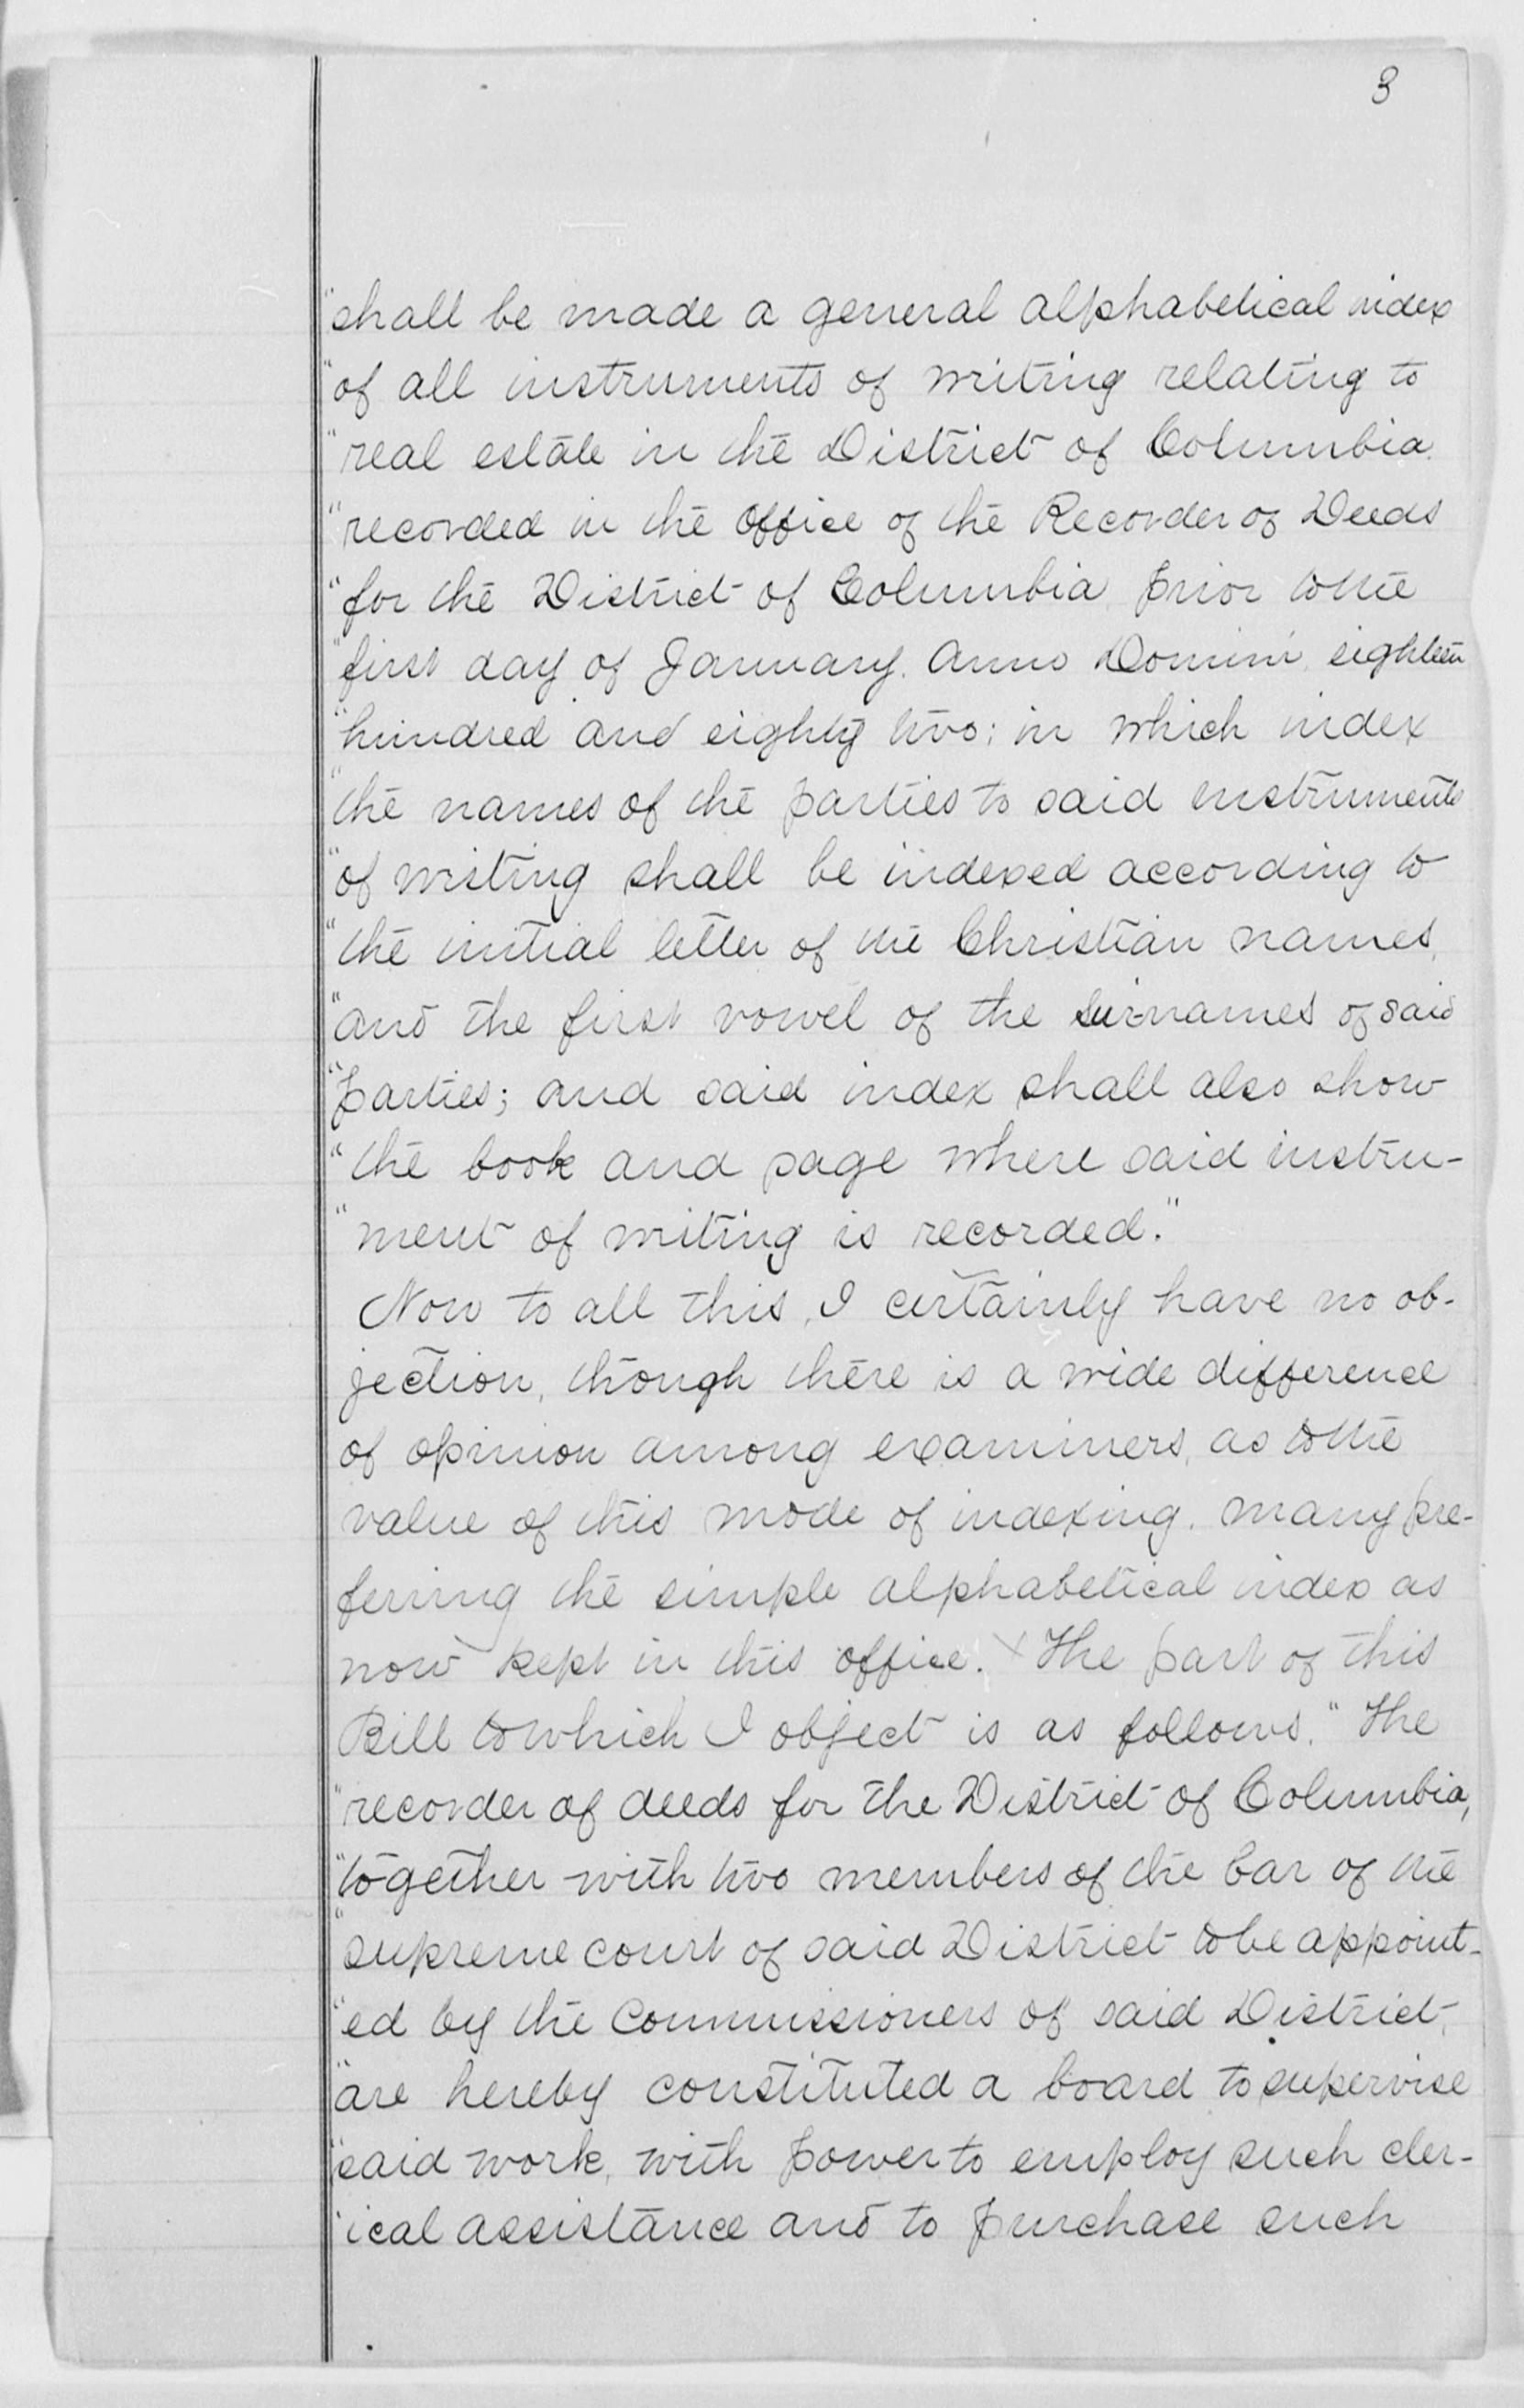 3
"shall be made a general alphabetical index
"of all instruments of writing relating to
"real estate in the District of Columbia
"recorded in the office of the Recorder of Deeds
"for the District of Columbia prior to the
"first day of January. Anno Domini eighteen
"hundred and eighty two; in which index
"the names of the parties to said instruments
"of writing shall be indexed according to
"the initial letter of the Christian names,
"and the first vowel of the surnames of said
"parties; and said index shall also show
"the book and page where said instru-
"ment of writing is recorded."
Now to all this, I certainly have no ob-
jection, though there is a wide difference
of opinion among examiners, as to the
value of this mode of indexing. many pre-
ferring the simple alphabetical index as
now kept in this office. x The part of this
Bill to which I object is as follows. "The
"recorder of deeds for the District of Columbia,
"together with two members of the bar of the
"supreme court of said District to be appoint-
"ed by the Commissioners of said District,
"are hereby constituted a board to supervise
"said work, with power to employ such cler-
"ical assistance and to purchase such